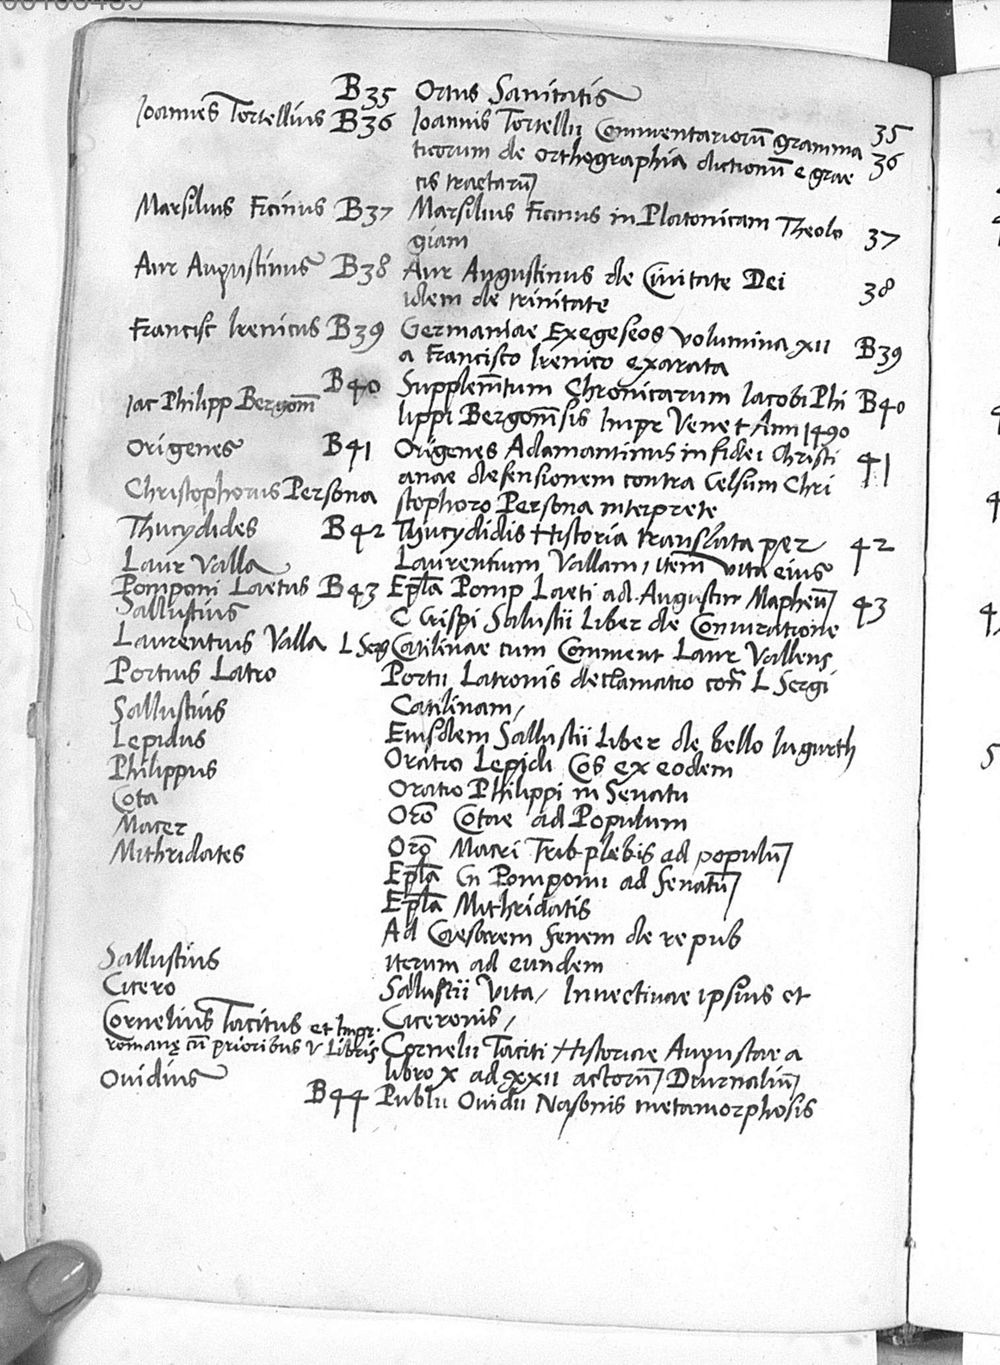 B35 Ortus Sanitatis
Joannes Tortellius B36 Joannis Tortellii Commentariorū gramma 35
ticorum de orthographia dictionū e grae 36
cis tractarū
Marsilius Ficinus B37 Marsilius Ficinus in Platonicam Theolo 37
giam
Aur Augustinus B38 Aur Augustinus de Civitate Dei 38
idem de trinitate
Francisc Irenicus B39 Germaniae Exegeseos volumina xii B39
a Francisco Irenico exarata
Iac Philipp Bergom̄ B40 Supplem̄tum Chronicarum Iacobi Phi B40
lippi Bergom̄sis Impr Venet Ann 1490
Origenes B41 Origenes Adamantinus in fidei Christi 41
anae defensionem contra Celsum Chri
Christophorus Persona stophoro Persona interprete
Thucydides B42 Thucydidis Historia translata per 42
Laur Valla Laurentium Vallam, item vita eius
Pomponi Laetus B43 Ep̄la Pomp Laeti ad Augustin Mapheū 43
Sallustius C Crispi Salustii Liber de Coniuratione
Laurentius Valla L Serg Catilinae cum Comment Laur Vallens
Portius Latro Portii Latronis declamatio con̄ L Sergi
Catilinam,
Sallustius Eiusdem Sallustii Liber de bello Iugurth
Lepidus Oratio Lepidi Cos ex eodem
Philippus Oratio Philippi in Senatu
Cota Orō Cotae ad Populum
Macer Orō Macri Trib plebis ad populū
Mithridates Ep̄la Cn Pomponii ad senatū
Ep̄la Mithridatis
Ad Caesarem senem de repub
Sallustius iterum ad eundem
Cicero Salustii Vita, Invectivae ipsius et
Ciceronis,
Cornelius Tacitus et Impr. Cornelii Taciti Historiae Augustae a
romanę cū prioribus V Libris libro X ad XXII actorū Diurnaliū
Ovidius B44 Publii Ovidii Nasonis metamorphosis